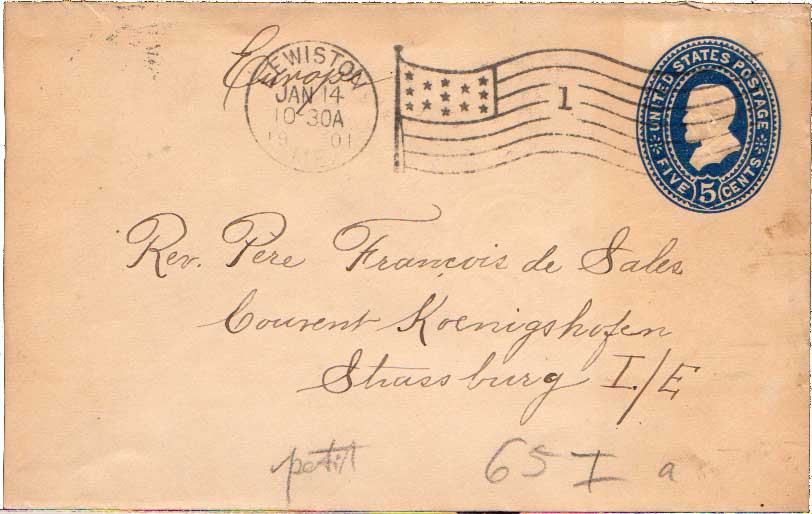 Europe
LEWISTON
JAN 14
10-30A
19 01
ME.
1
UNITED STATES POSTAGE
FIVE 5 CENTS
Rev. Père François de Sales
Couvent Koenigshofen
Strassburg I./E
petit
65 I a